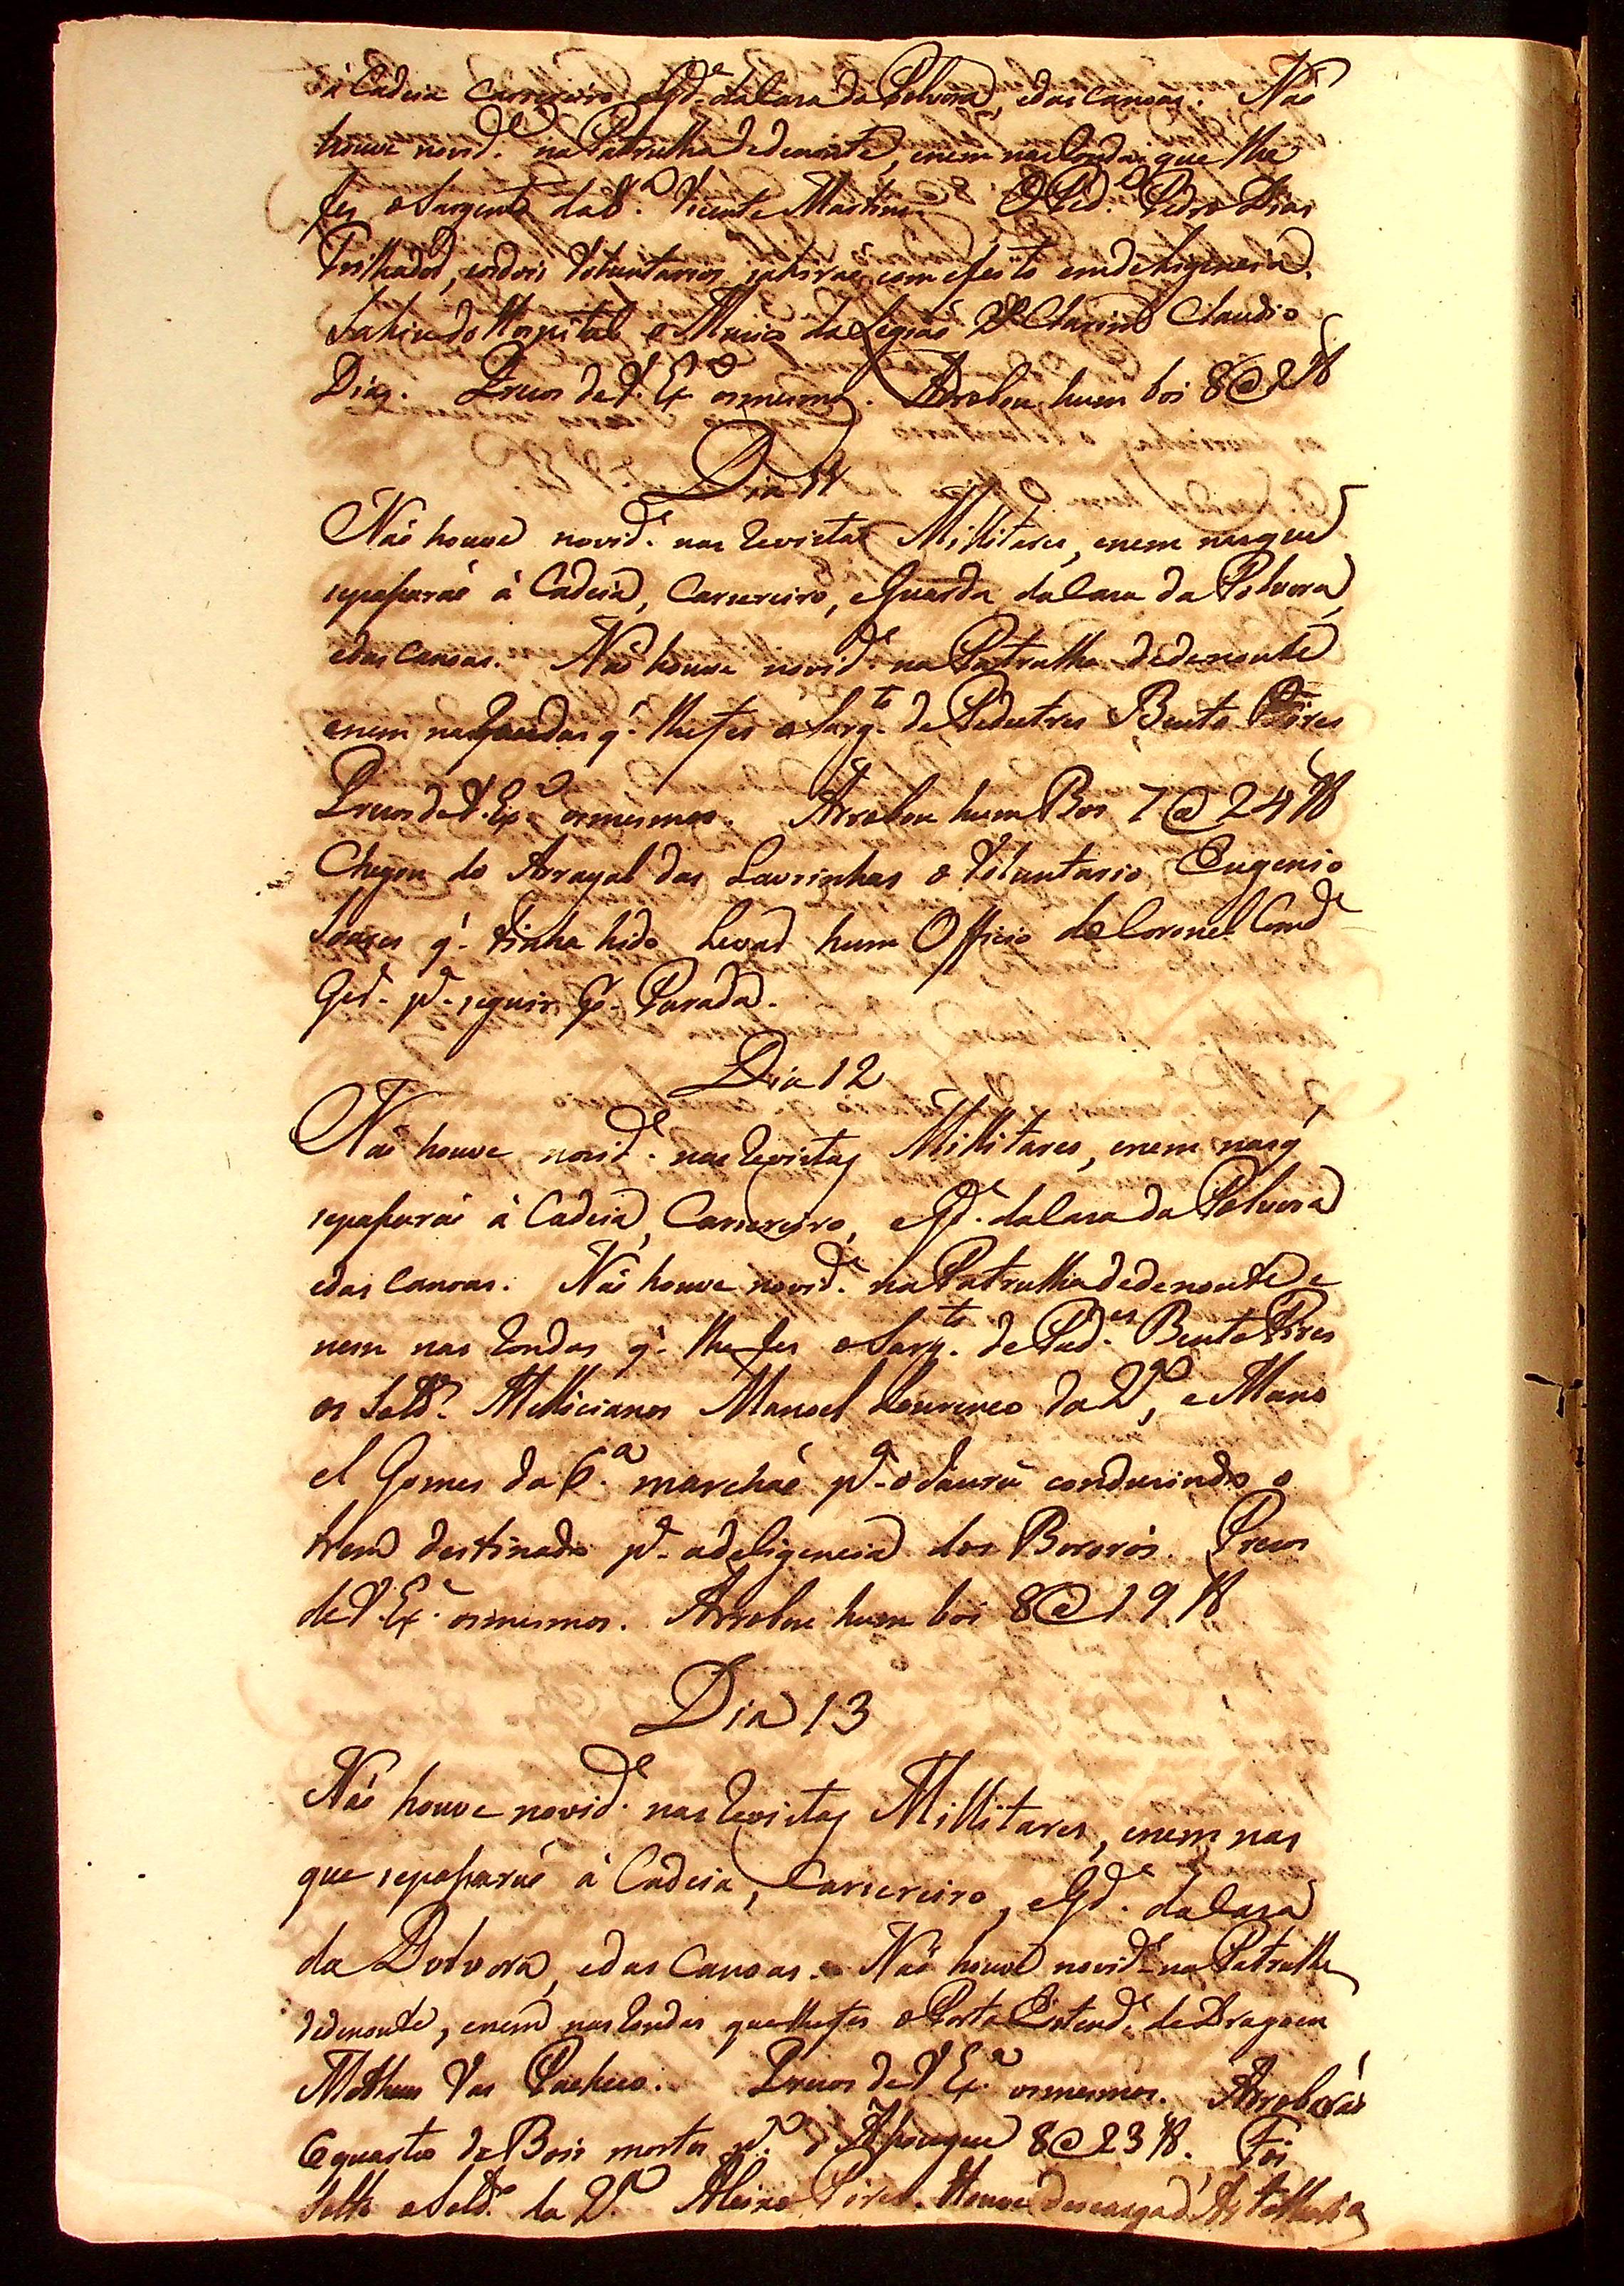 à Cadeia Carsereiro eGd.e dacasa da Polvora, edas canoas. Não
houve novid.e na Patrulha dedenoute, enem nas Rondas que lhe
fes oSargento da 8.a Vicente Martins. O Ped.e Pedro Dias
Trilhado, eosdois Voluntarios sahirão com efeito emdeligencia.
Sahio do Hospital o Musico da Legião Clarim Claudio
Dias. Prezos de V. Ex.a osmesmos. Arrobou hum boi 8@2 lb
Dia 11
Não houve novid.e nas Revistas Millitares, enem nasque
sepassarão à Cadeia, Carsereiro, eGuarda dacasa da Polvora,
edas canoas. Não houve novid.e na Patrulha dedenoute
enem nas Rondas q. lhefes o Sarg.to de Pedestres Bento Pires
Prezos de V. Ex.a osmesmos. Arrobou hum Boi 7@24 lb
Chegou do Arrayal das Lavrinhas o Voluntario Eugenio
Soares q. tinha hido Levar hum Officio do Coronel Comd.e
Ged. p.a seguir p.r Parada.
Dia 12
Não houve novid.e nas Revistas Millitares, enem nasq.
sepassarão à Cadeia, Carsereiro, eGd.e dacasa da Polvora
edas canoas. Não houve novid.e na Patrulha dedenoute e
nem nas Rondas q. lhe fes oSarg.to de Ped.es Bento Pires
os Sold.os Millicianos Manoel Lourenco da 2.a, e Mano
el Gomes da 6.a marchão p.a oJaurú condusindo o
trem destinado p.a adeligencia dos Bororós. Prezos
de V. Ex.a osmesmos. Arrobou hum boi 8@19 lb
Dia 13
Não houve novid.e nas Revistas Millitares, enem nas
que sepassarão à Cadeia, Carsereiro, eGd.e dacasa
da Polvora, edas Canoas. Não houve novid.e na Patrulha
dedenoute, enem nas Rondas quelhefes oPorta Estend.e de Dragoens
Matheus Vas Pacheco. Prezos de V. Ex.a osmesmos. Arrobarão
6 quartos de Bois mortos p.a o Assougue 8@23 lb. Foi
Solto oSold.o da 2.a Aleixo Pires. Houve descarga d'Artelharia